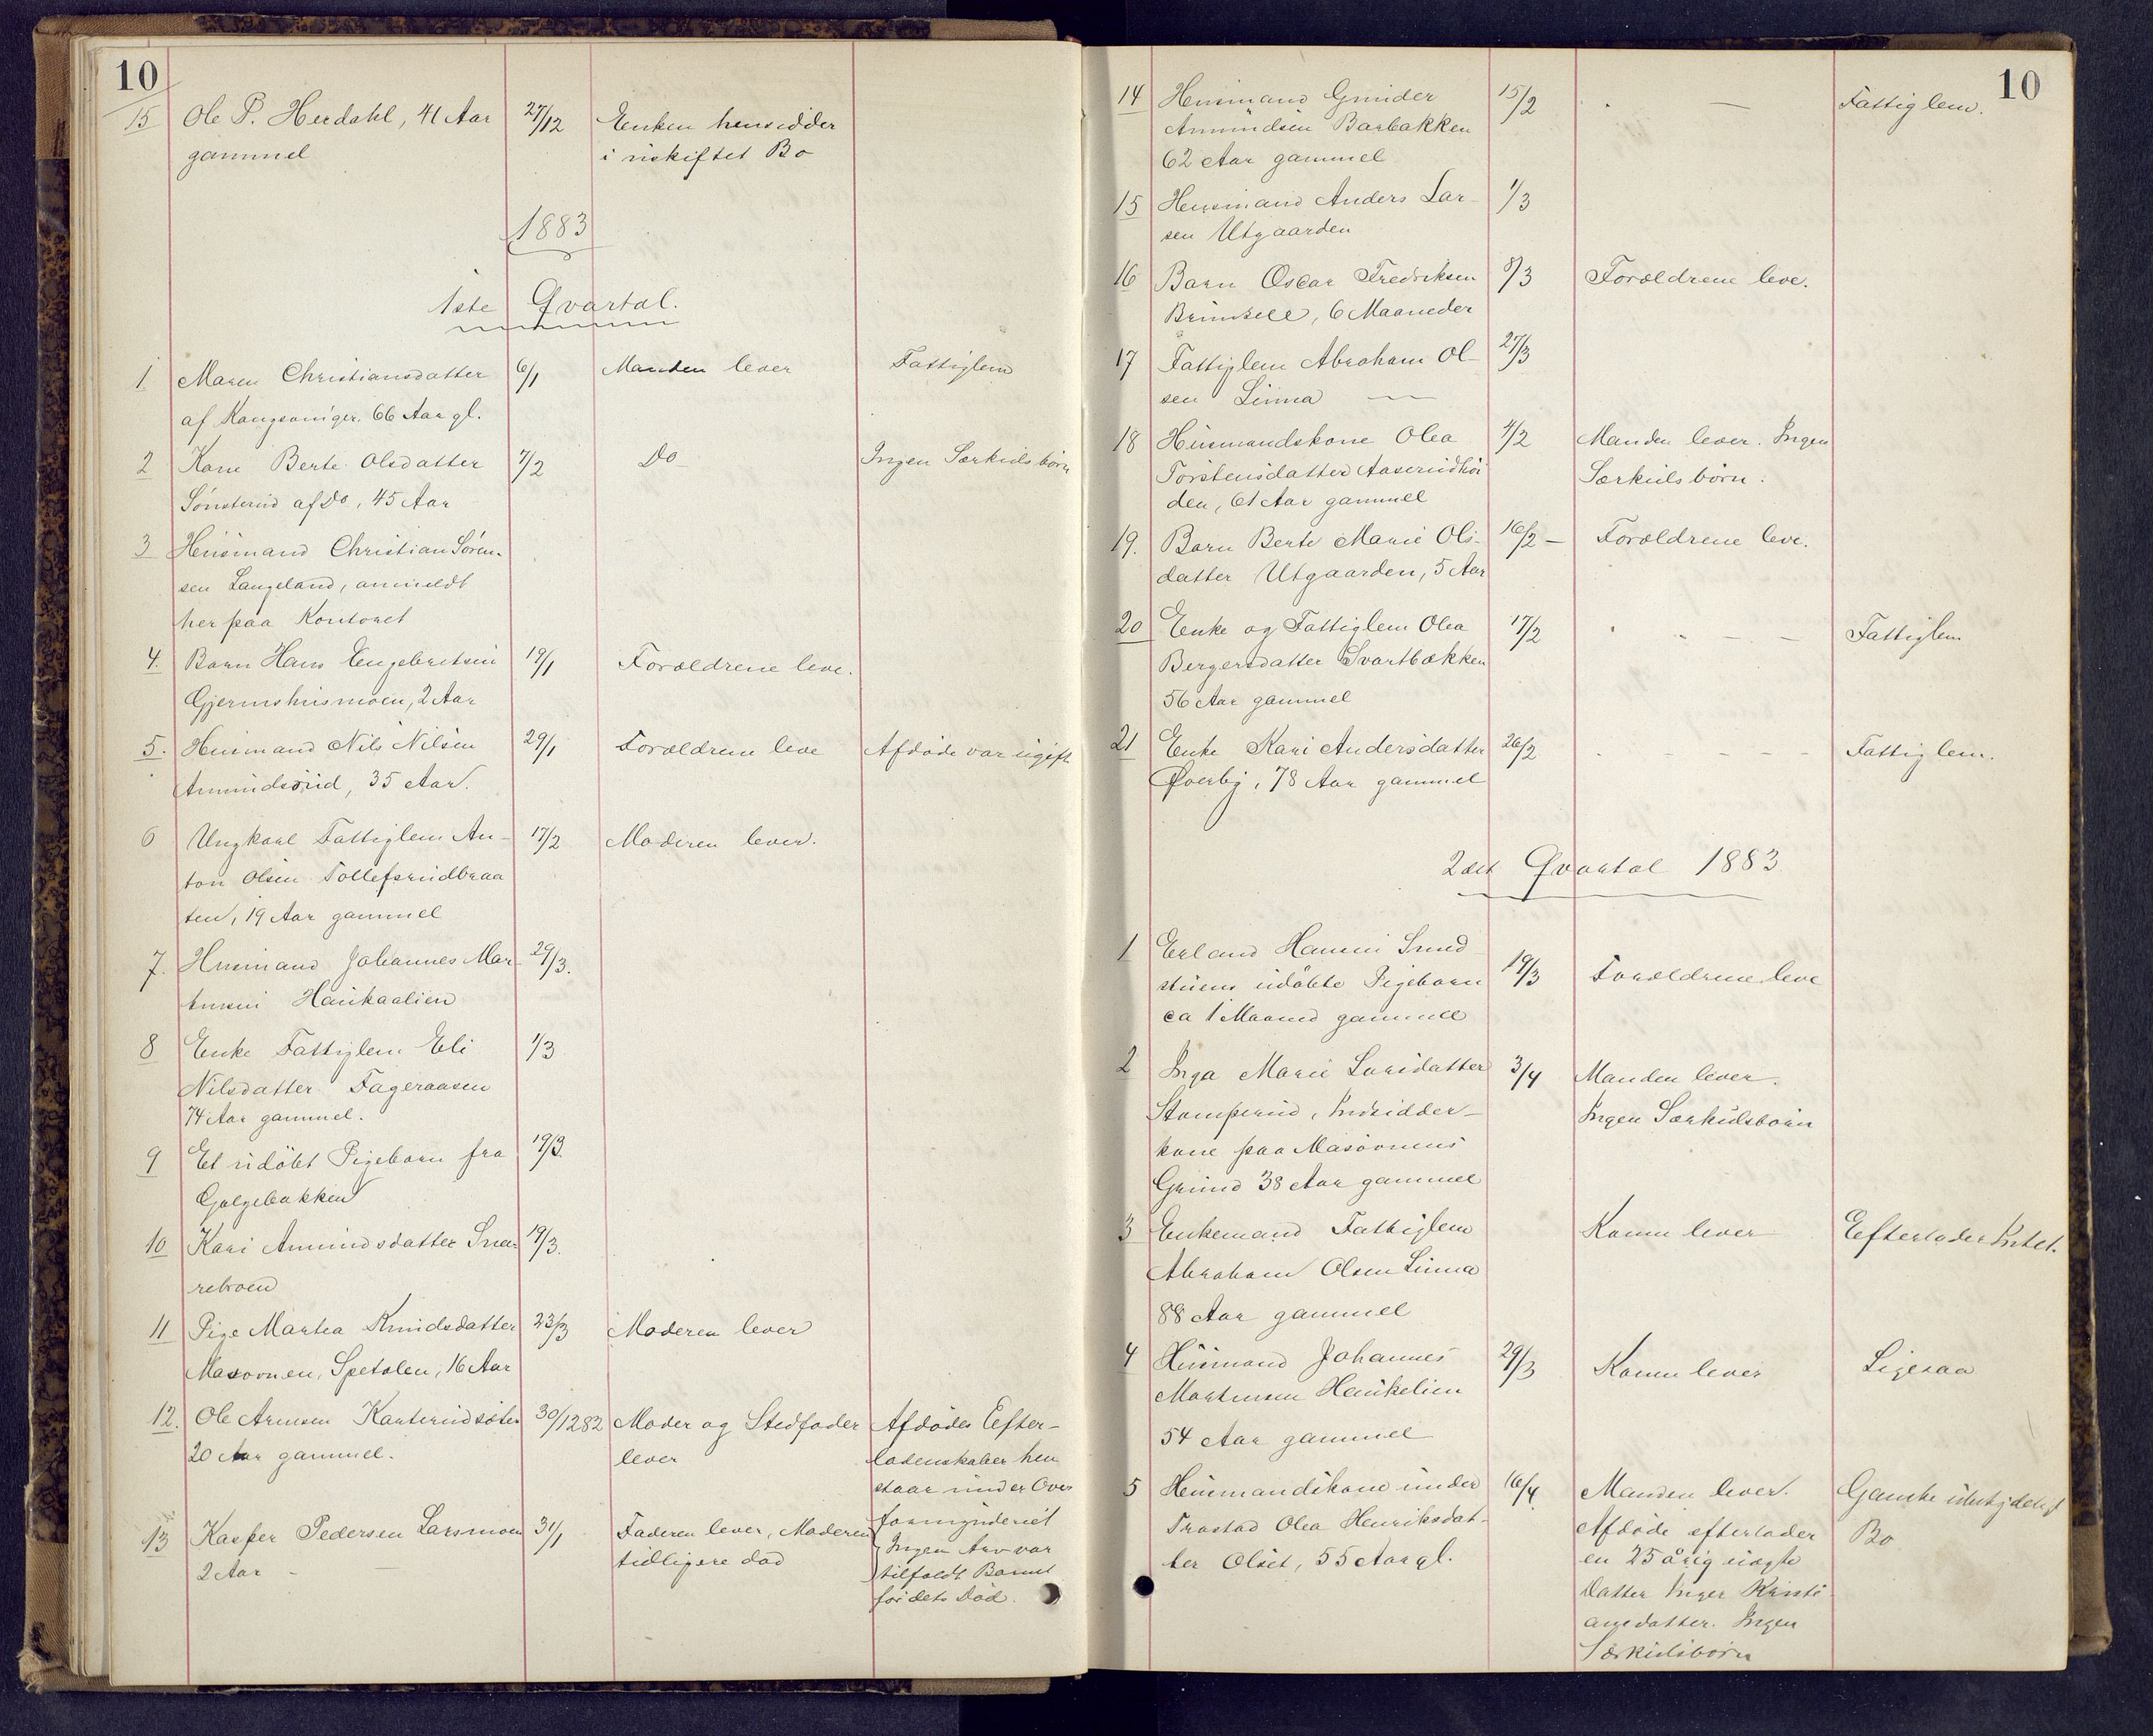 10
15 Ole P. Herdahl, 41 Aar 27/12 Enken hensidder
gammel i uskiftet Bo
1883
1ste Qvartal.
1 Maren Christiansdatter 6/1 Manden lever Fattiglem
af Kongsvinger. 66 Aar gl.
2 Kone Berte Olsdatter 7/2 Do Ingen Særkuldsbørn
Sønsterud af Do, 45 Aar
3 Husmand Christian Søren-
sen Langeland, anmeldt
her paa Kontoret
4. Barn Hans Engebretsen 19/1 Forældrene leve.
Gjermshusmoen, 2 Aar
5. Husmand Nils Nilsen 29/1 Forældrene leve Afdøde var ugift
Amundsrud, 35 Aar.
6 Ungkarl Fattiglem An- 17/2 Moderen lever.
ton Olsen Tollefsrudbraa
ten, 19 Aar gammel
7. Husmand Johannes Mar- 29/3.
tinsen Haukaalien
8 Enke Fattiglem Eli 1/3
Nilsdatter Fageraasen
74 Aar gammel.
9 Et udøbt Pigebarn fra 19/3.
Golgebakken
10 Kari Amundsdatter Sna- 19/3.
rebroen
11 Pige Martea Knudsdatter 23/3 Moderen lever
Masovnen, Spetalen, 16 Aar
12. Ole Arnesen Karterudsæter 30/12 82 Moder og Stedfader Afdødes Efter-
20 Aar gammel. lever ladenskaber hen
staar under Over
formynderiet
13 Kasper Pedersen Larsmoen 31/1 Faderen lever, Moderen Ingen Arv var
2 Aar - — tidligere død tilfaldt Barnet
før dets Død.
10
14 Husmand Gunder 15/2 — Fattiglem.
Amundsen Barbakken
62 Aar gammel
15 Husmand Anders Lar- 1/3
sen Utgaarden
16 Barn Oscar Fredriksen 8/3 Forældrene leve.
6 Maaneder
17 Fattiglem Abraham Ol- 27/3
sen Linna —
18 Husmandskone Olea 4/2 Manden lever. Ingen
Torstensdatter Særkulsbørn.
den, 61 Aar gammel
19. Barn Berte Marie Ols- 16/2 — Forældrene leve.
datter Utgaarden, 5 Aar
20 Enke og Fattiglem Olea 17/2 - — - — Fattiglem
Bergersdatter Svartbækken
56 Aar gammel
21 Enke Kari Andersdatter 26/2 - - - - - Fattiglem.
Øverby, 78 Aar gammel
2det Qvartal 1883
1 Erland Hansen Smed
stuens udøbte Pigebarn 19/3 Forældrene leve
ca 1 Maaned gammel
2 Inga Marie Larsdatter 3/4 Manden lever.
Stomperud, Indsidder- Ingen Særkulsbørn
kone paa Masovnens
Grund 38 Aar gammel
3 Enkemand Fattiglem Konen lever Efterlader Intet.
Abraham Olsen Linna
88 Aar gammel
4 Husmand Johannes 29/3 Konen lever Ligesaa
Martinsen Haukelien
54 Aar gammel
5 Husmandskone under 16/4 Manden lever. Ganske ubetydeligt
Trastad Olea Henriksdat- Afdøde efterlader Bo
ter Olset, 55 Aar gl. en 25 årig uægte
Datter Inger Kristi-
ansdatter. Ingen
Særkulsbørn